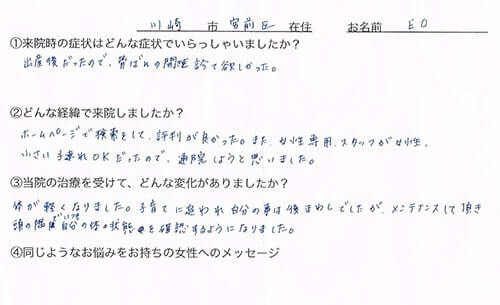 川崎 市 宮前区 在住 お名前 E O
①来院時の症状はどんな症状でいらっしゃいましたか？
出産後だったので、骨ばんの問題診て欲しかった。
②どんな経緯で来院しましたか？
ホームページで検索をして、評判が良かった。また、女性専用、スタッフが女性、
小さい子連れOKだったので、通院しようと思いました。
③当院の治療を受けて、どんな変化がありましたか？
体が軽くなりました。子育てに追われ自分の事は後まわしでしたが、メンテナンスして頂き
頭の隅でいつも自分の体の状態を確認するようになりました。
④同じようなお悩みをお持ちの女性へのメッセージ